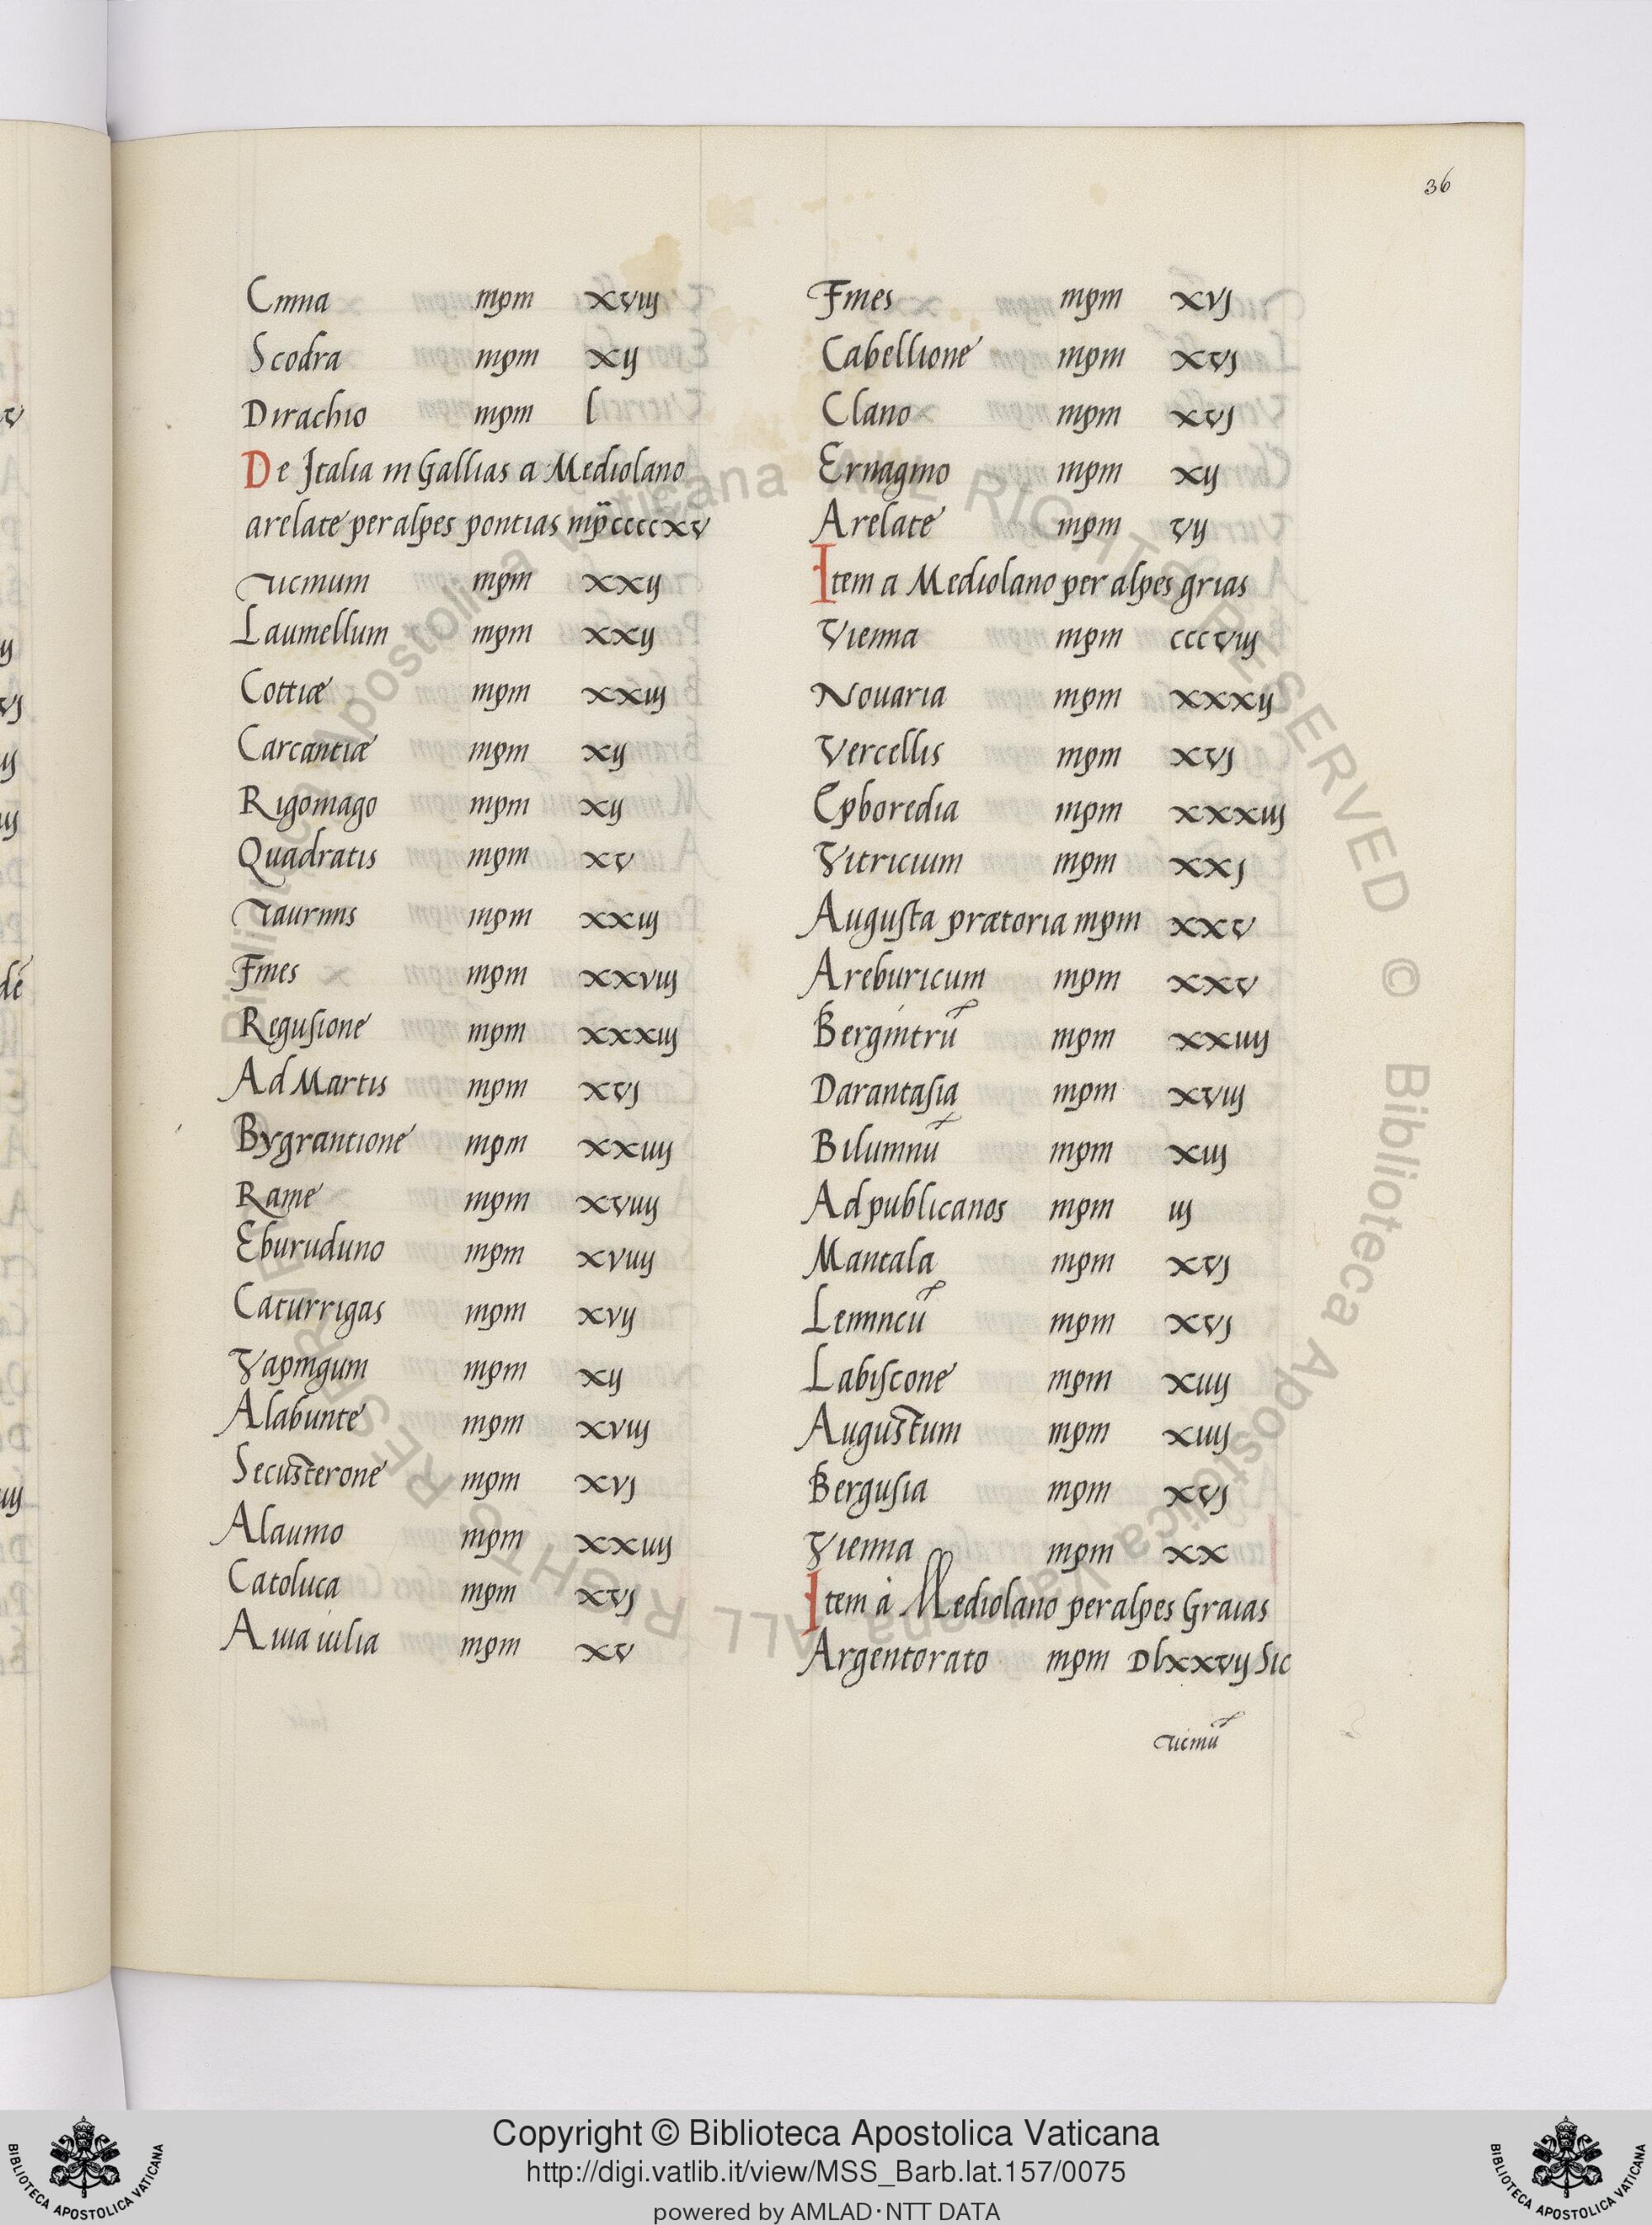 36
Cinna mpm xviij
Scodra mpm xij
Dirachio mpm l
De Italia in Gallias a Mediolano
arelate per alpes pontias mp̈ ccccxv
Ticinum mpm xxij
Laumellum mpm xxij
Cottiæ mpm xxiij
Carcantiæ mpm xij
Rigomago mpm xij
Quadratis mpm xv
Taurinis mpm xxiij
Fines mpm xxviij
Regusione mpm xxxiij
Ad Martis mpm xvj
Bygrantione mpm xxiiij
Rame mpm xviiij
Eburuduno mpm xviiij
Caturrigas mpm xvij
Vapingum mpm xij
Alabunte mpm xviij
Secusterone mpm xvj
Alaunio mpm xxiiij
Catoluca mpm xvj
Auia iulia mpm xv
Fines mpm xvj
Cabellione mpm xvj
Clano mpm xvj
Ernagino mpm xij
Arelate mpm vij
Item a Mediolano per alpes grias
Vienna mpm cccviij
Nouaria mpm xxxij
Vercellis mpm xvj
Epboredia mpm xxxiij
Vitricium mpm xxj
Augusta prætoria mpm xxv
Areburicum mpm xxv
Bergintrū mpm xxiiij
Darantasia mpm xviij
Bilumnū mpm xiij
Ad publicanos mpm iij
Mantala mpm xvj
Lemincū mpm xvj
Labiscone mpm xiiij
Augustum mpm xiiij
Bergusia mpm xvj
Vienna mpm xx
Item à Mediolano per alpes Graias
Argentorato mpm Dlxxvij Sic
Ticinū
Copyright © Biblioteca Apostolica Vaticana
http://digi.vatlib.it/view/MSS_Barb.lat.157/0075
powered by AMLAD·NTT DATA
BIBLIOTECA APOSTOLICA VATICANA
BIBLIOTECA APOSTOLICA VATICANA